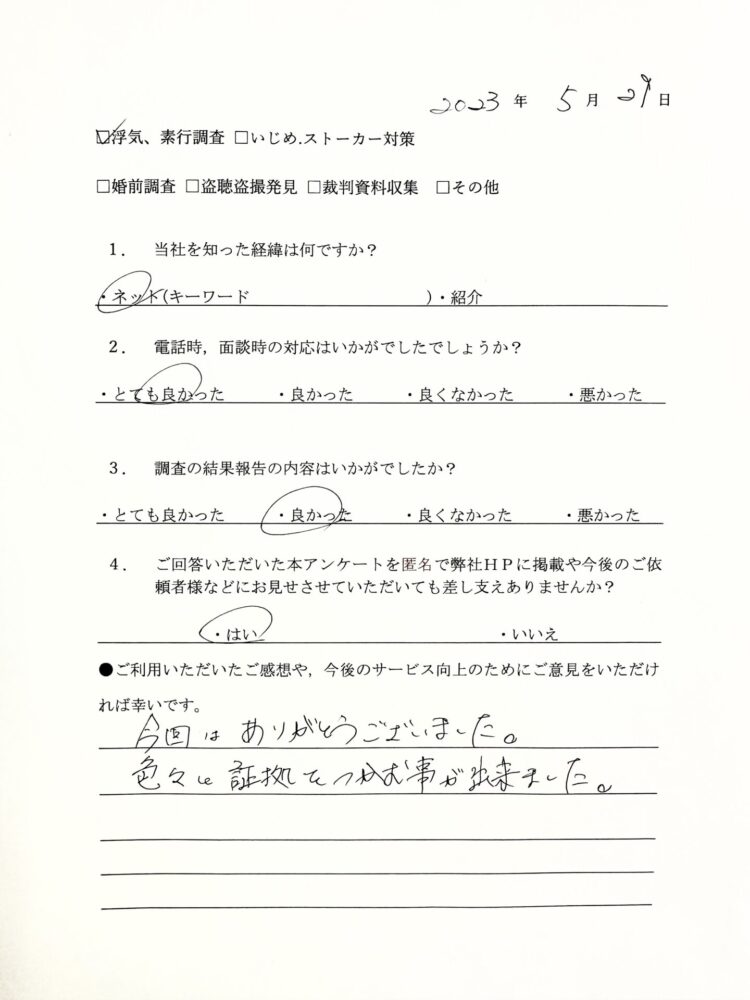 2023 年 5 月 29 日
☑浮気、素行調査 □いじめ.ストーカー対策
□婚前調査 □盗聴盗撮発見 □裁判資料収集 □その他
1． 当社を知った経緯は何ですか？
・ネット(キーワード )・紹介
2． 電話時，面談時の対応はいかがでしたでしょうか？
・とても良かった ・良かった ・良くなかった ・悪かった
3． 調査の結果報告の内容はいかがでしたか？
・とても良かった ・良かった ・良くなかった ・悪かった
4． ご回答いただいた本アンケートを匿名で弊社ＨＰに掲載や今後のご依
頼者様などにお見せさせていただいても差し支えありませんか？
・はい ・いいえ
●ご利用いただいたご感想や，今後のサービス向上のためにご意見をいただけ
れば幸いです。
今回は ありがとうございました。
色々と 証拠をつかむ事が出来ました。